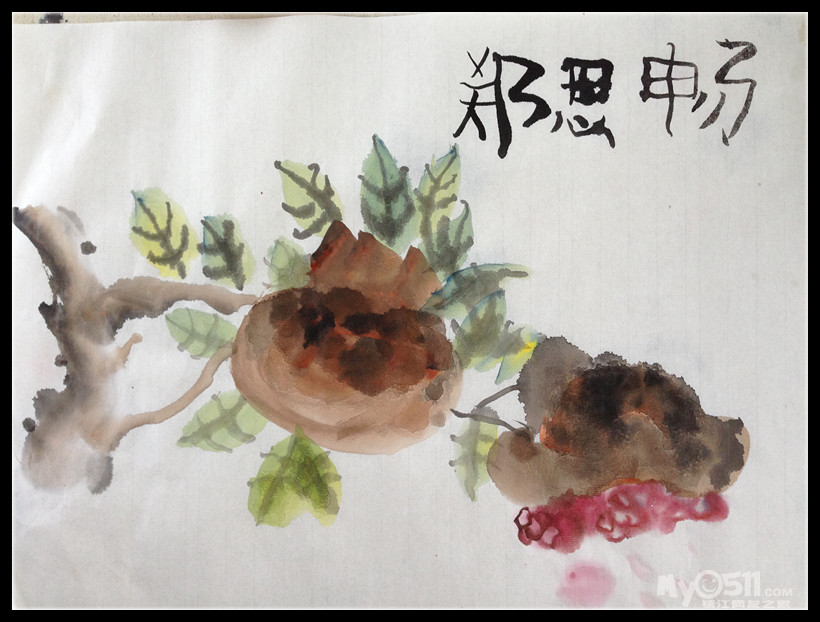 郑思畅
MY0511.COM
镇江网友之家